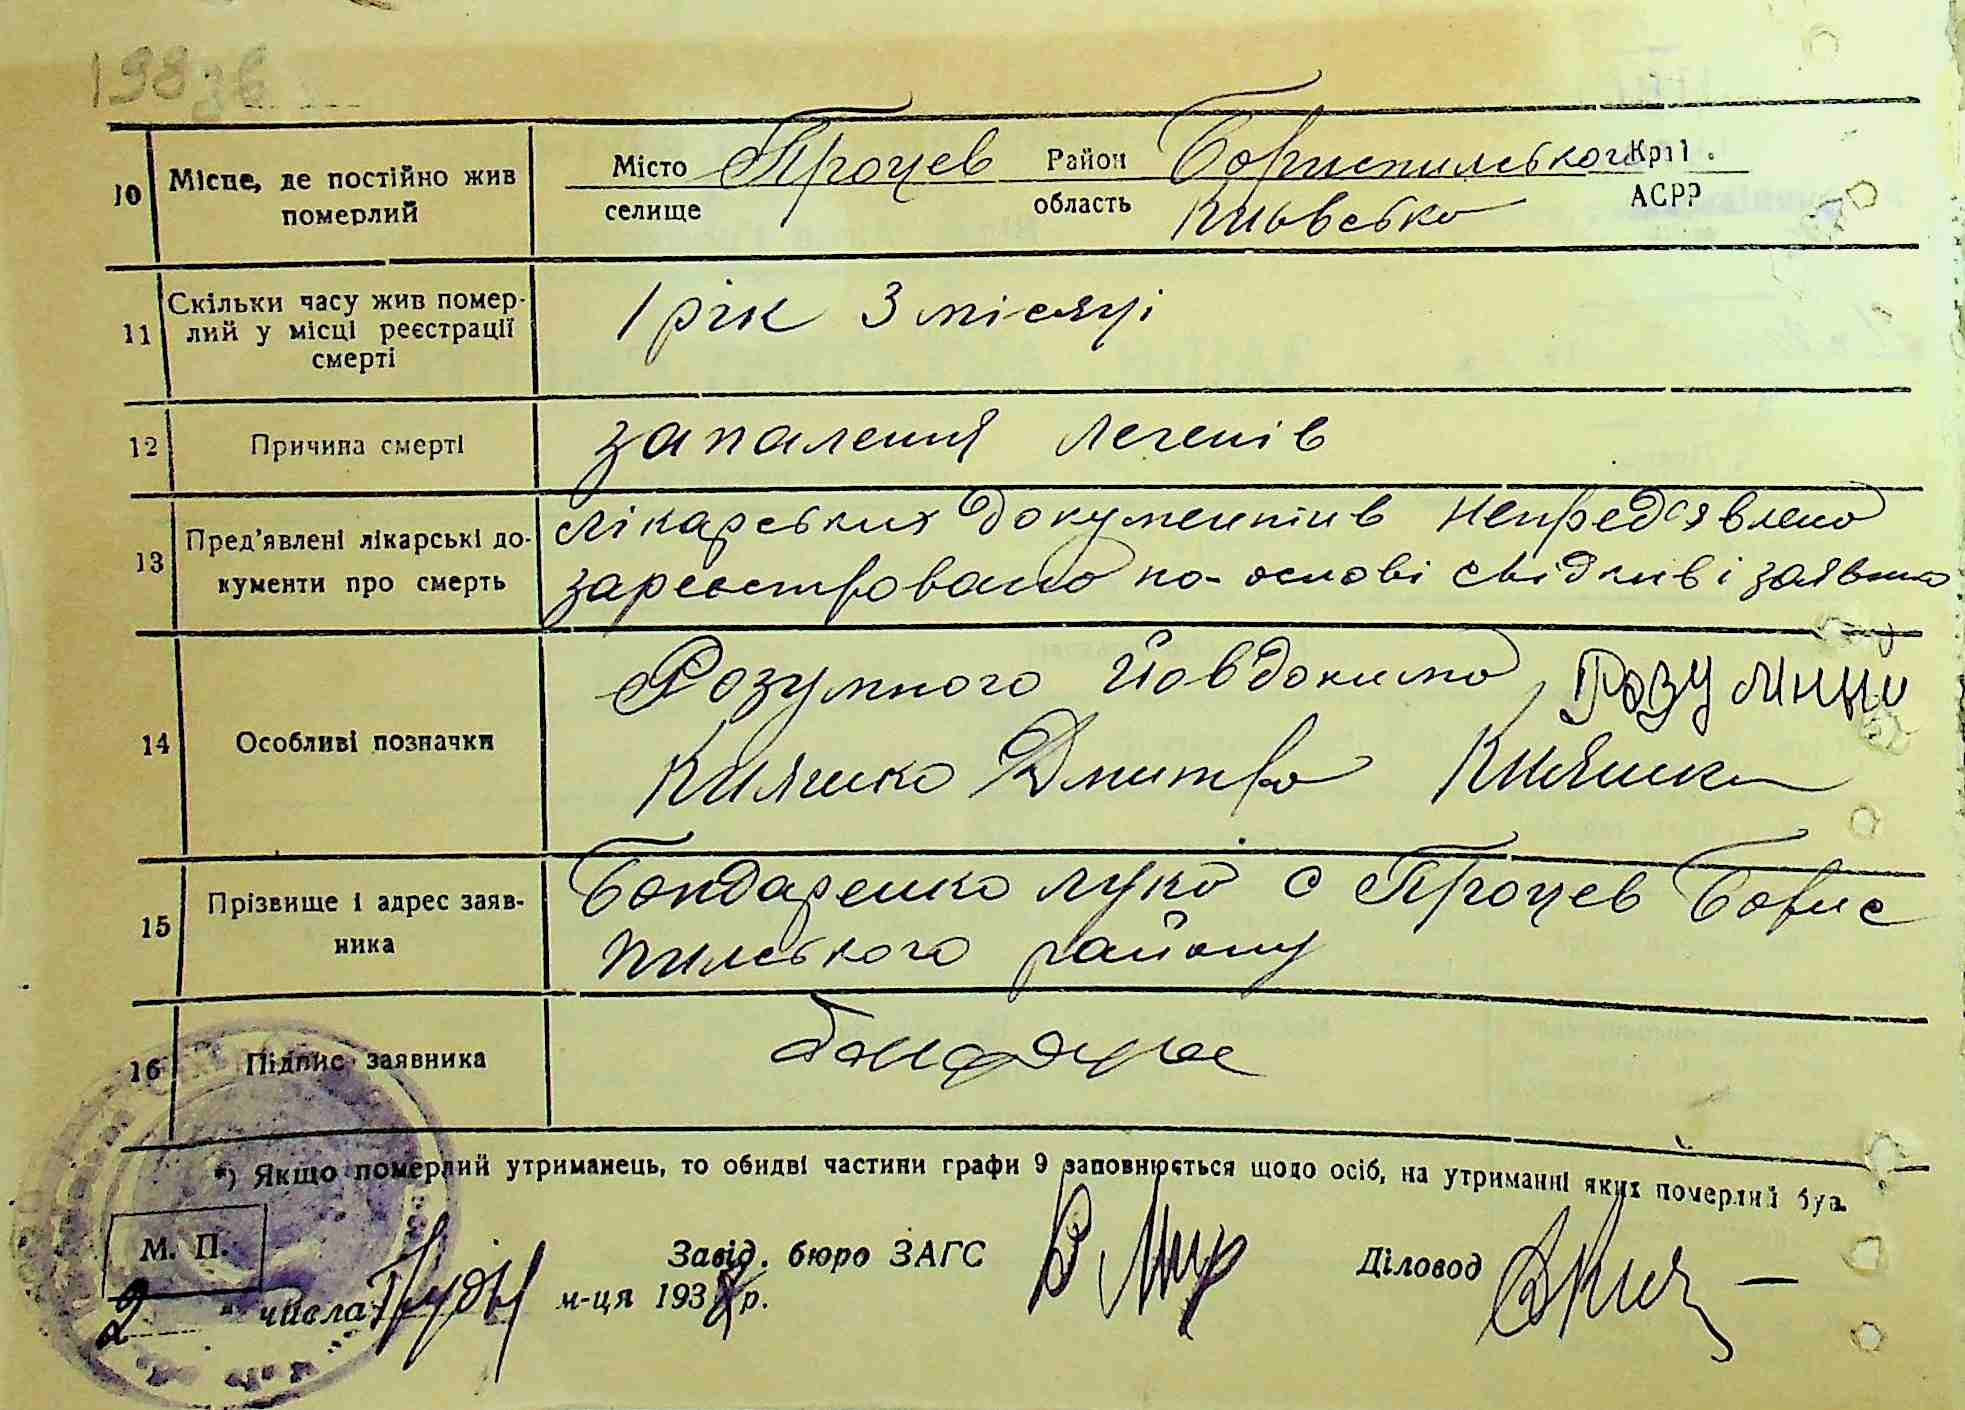 198зв
10 Місце, де постійно жив померлий
Місто Процев Район Бориспильського Кр11.
селище область Киівсько АСР?
11 Скільки часу жив помер-
лий у місці реєстрації
смерті
1 рік 3 місяці
12 Причина смерті
запалення легенів
13 Пред'явлені лікарські до-
кументи про смерть
лікарських документив непредсявлено
зареєстровано на основі свідкив і заявника
14 Особливі позначки
Розумного Йовдокима Розумний
Кияшко Дмитра Кияшка
15 Прізвище і адрес заяв-
ника
Бондаренко Лука с Процев Борис
пилського району
16 Підпис заявника
*) Якщо померлий утриманець, то обидві частини графи 9 заповнюється щодо осіб, на утриманні яких померлий був.
М. П.
Завід. бюро ЗАГС
Діловод
2 " числа Грудн м-ця 193 р.